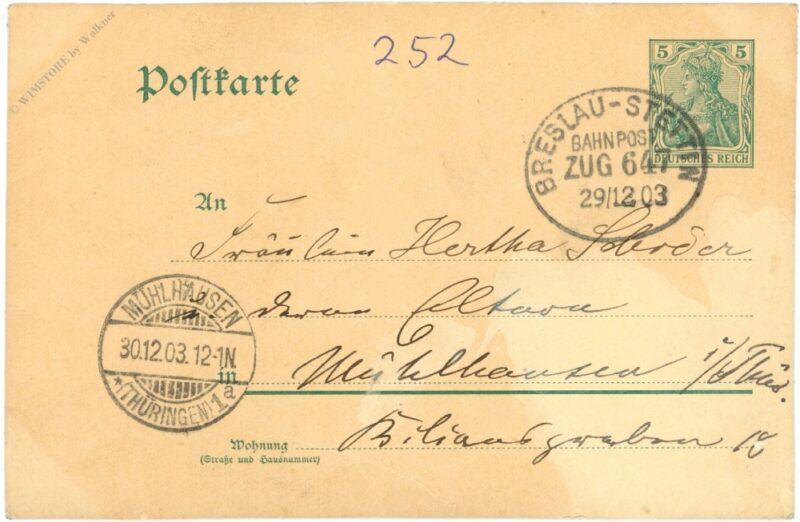 © WIMSTORE by Walkner
252
Postkarte
5 5
DEUTSCHES REICH
BRESLAU-STETTIN
BAHNPOST
ZUG 647
29/12 03
An
Fräulein Hertha Schröder
deren Eltern
Mühlhausen i/Thür.
in
Kiliansgraben
Wohnung
(Straße und Hausnummer)
MÜHLHAUSEN
30.12.03. 12-1N.
*(THÜRINGEN) 1a